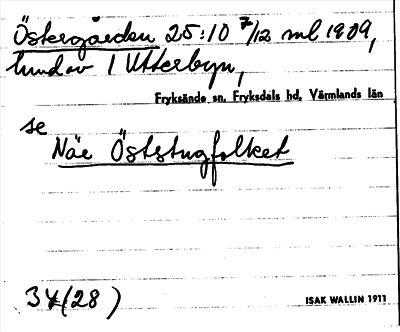 Östergården 25:10 7/12 ml 1909,
hmd av 1 Utterbyn,
Fryksände sn. Fryksdals hd. Värmlands län
se
När Öststugfolket
34(28)
ISAK WALLIN 1911